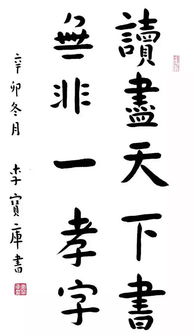 讀盡天下書
無非一孝字
辛卯冬月
李寶庫書